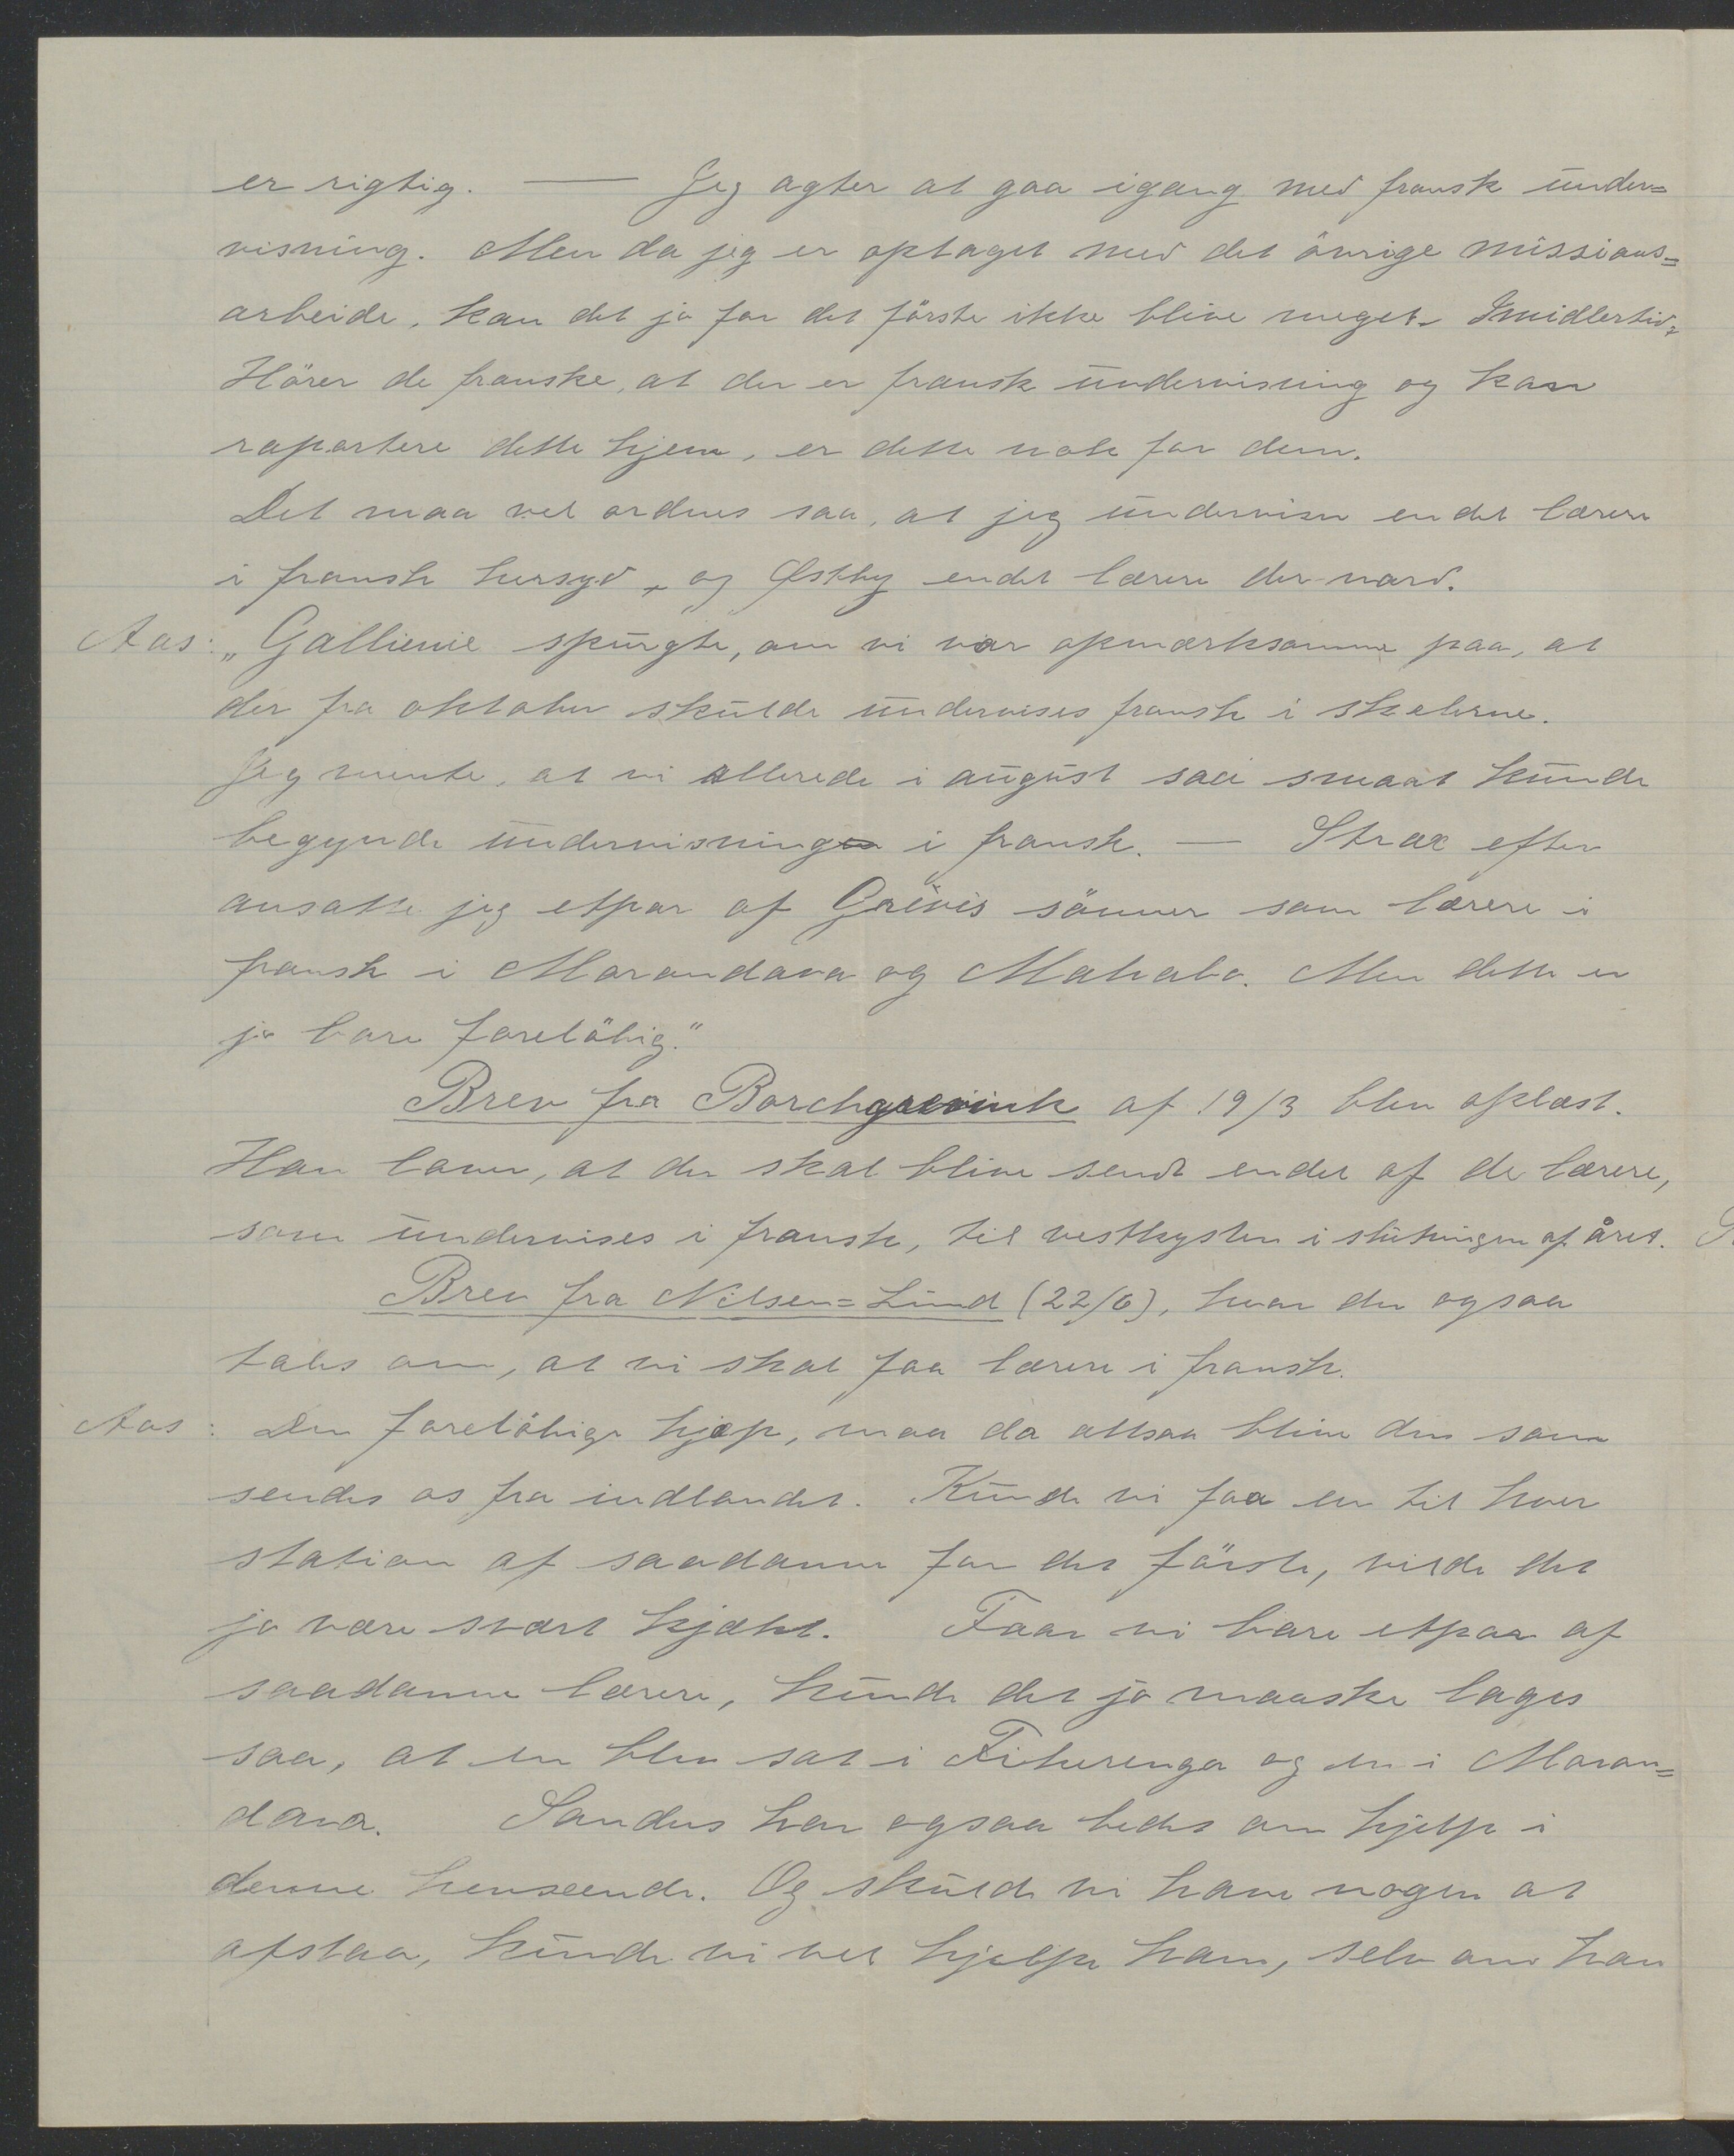 er rigtig. — Jeg agter at gaa igang med fransk under=
visning. Men da jeg er optaget med det övrige missions=
arbeide, kan det jo for det förste ikke blive meget. Imidlertid,
Hörer de franske, at der er fransk undervisning og kan
raportere dette hjem, er dette nok for dem.
Det maa vel ordnes saa, at jeg underviser endel lærere
i fransk hersyd, og Østby endel lærere der nord.
Aas: „Gallienie spurgte, om vi var opmærksomme paa, at
der fra oktober skulde undervises fransk i skolerne.
Jeg mente, at vi allerede i august saa smaat kunde
begynde undervisning i fransk. — Strax efter
ansatte jeg etpar af Grèvès sönner som lærere i
fransk i Morondava og Mahabo. Men dette er
jo bare foreløbig."
Brev fra Borchgrevink af 19/3 blev oplæst.
Han lover, at der skal blive sendt endel af de lærere,
som undervises i fransk, til vestkysten i slutningen af året.
Brev fra Nilsen=Lund (22/6), hvor der ogsaa
tales om, at vi skal faa lærere i fransk.
Aas: Den forelöbige hjælp, maa da altsaa blive den som
sendes os fra indlandet. Kunde vi faa en til hver
station af saadanne for det förste, vilde det
jo være svært kjækt. Faar vi bare etpar af
saadanne lærere, kunde det jo maaske lages
saa, at en blev sat i Fiherenga og en i Moron=
dava. Sandus har ogsaa bedet om hjelp i
denne henseende. Og skulde vi have nogen at
afstaa, kunde vi vel hjelpe ham, selv om han